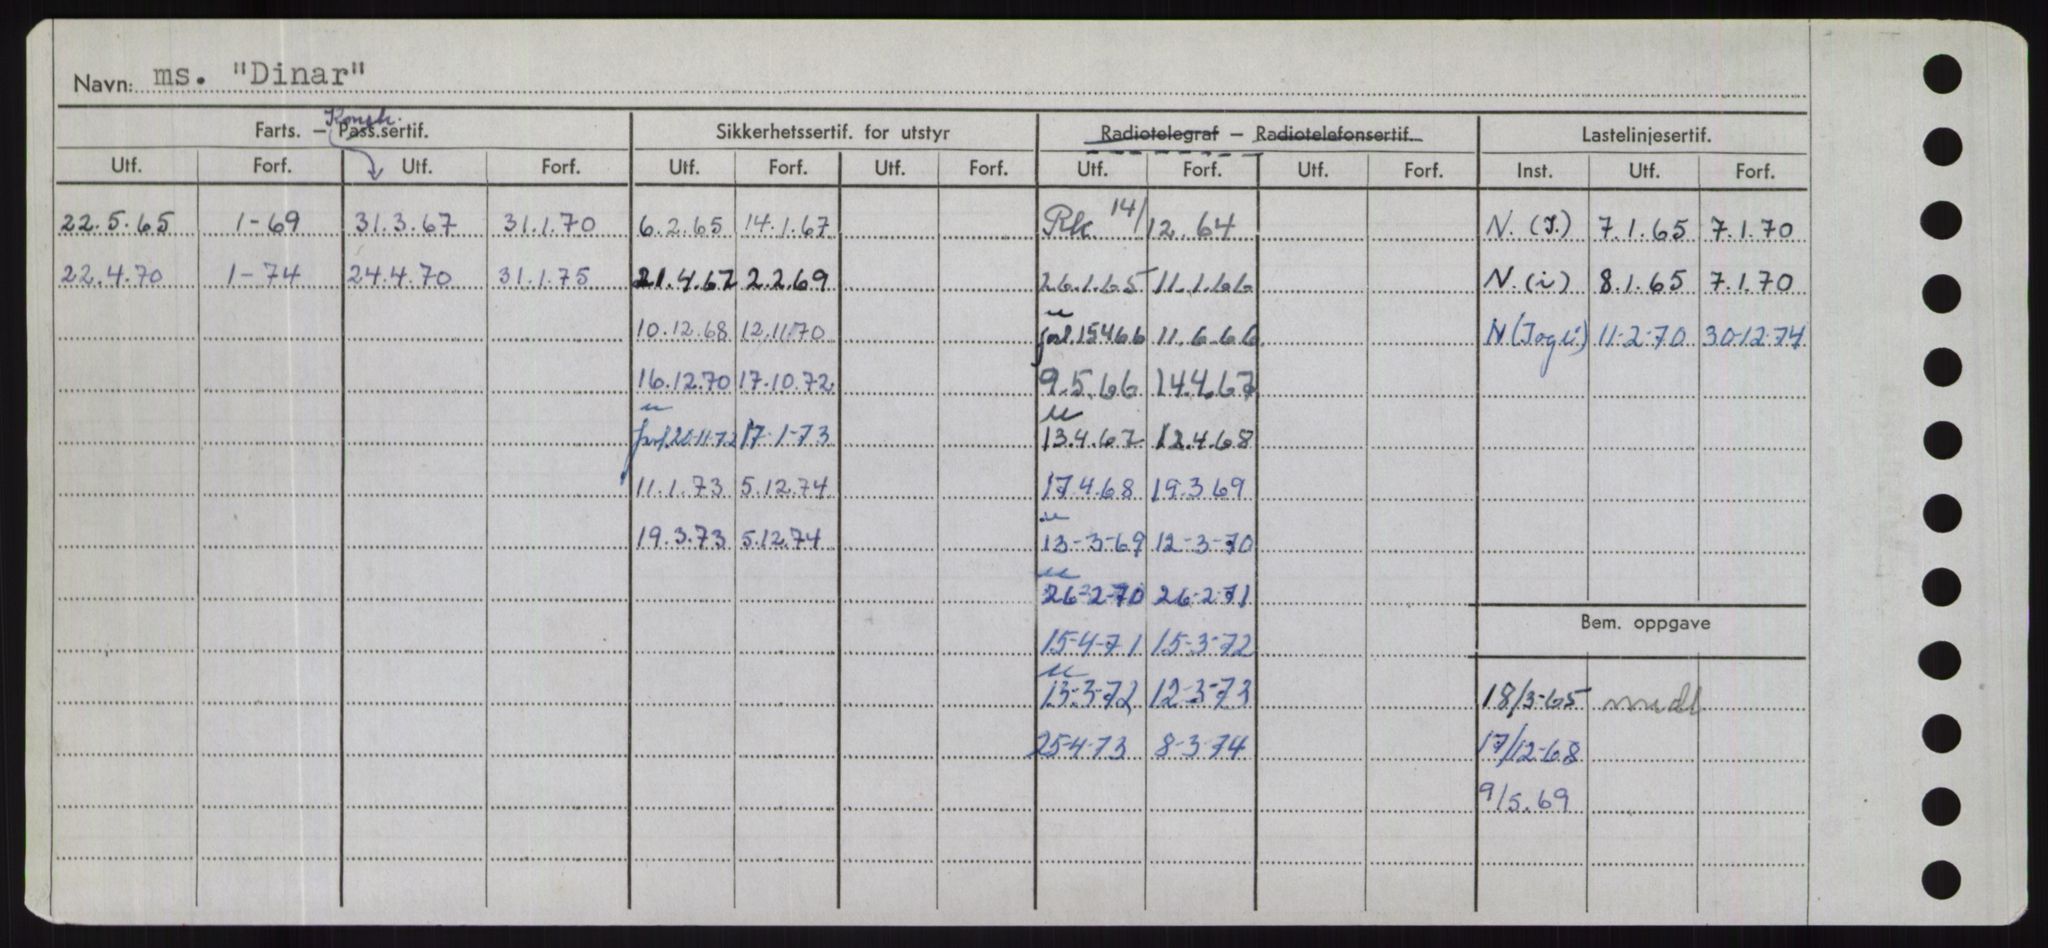 Navn: ms. "Dinar"
Konstr.
Farts. – Pass.sertif. Sikkerhetssertif. for utstyr Radiotelegraf – Radiotelefonsertif. Lastelinjesertif.
Utf. Forf. Utf. Forf. Utf. Forf. Utf. Forf. Utf. Forf. Utf. Forf. Inst. Utf. Forf.
22.5.65 1-69 31.3.67 31.1.70 6.2.65 14.1.67 Rtk. 14/12.64 N. (I.) 7.1.65 7.1.70
22.4.70 1-74 24.4.70 31.1.75 21.4.67 2.2.69 26.1.65 11.1.66 N. (i) 8.1.65 7.1.70
10.12.68 12.11.70 forl. 15.4.66 11.6.66. N (I og i) 11-2-70 30-12-74
16.12.70 17.10.72 9.5.66 14.4.67
forl. 20-11-72 17-1-73 13.4.67 12.4.68
11.1.73 5.12.74 17.4.68 19.3.69
19.3.73 5.12.74 13-3-69 12-3-70
26-2-70 26-2-71
Bem. oppgave
15-4-71 15-3-72
13-3-72 12-3-73 18/3-65 midl
25-4-73 8-3-74 17/12-68
9/5.69